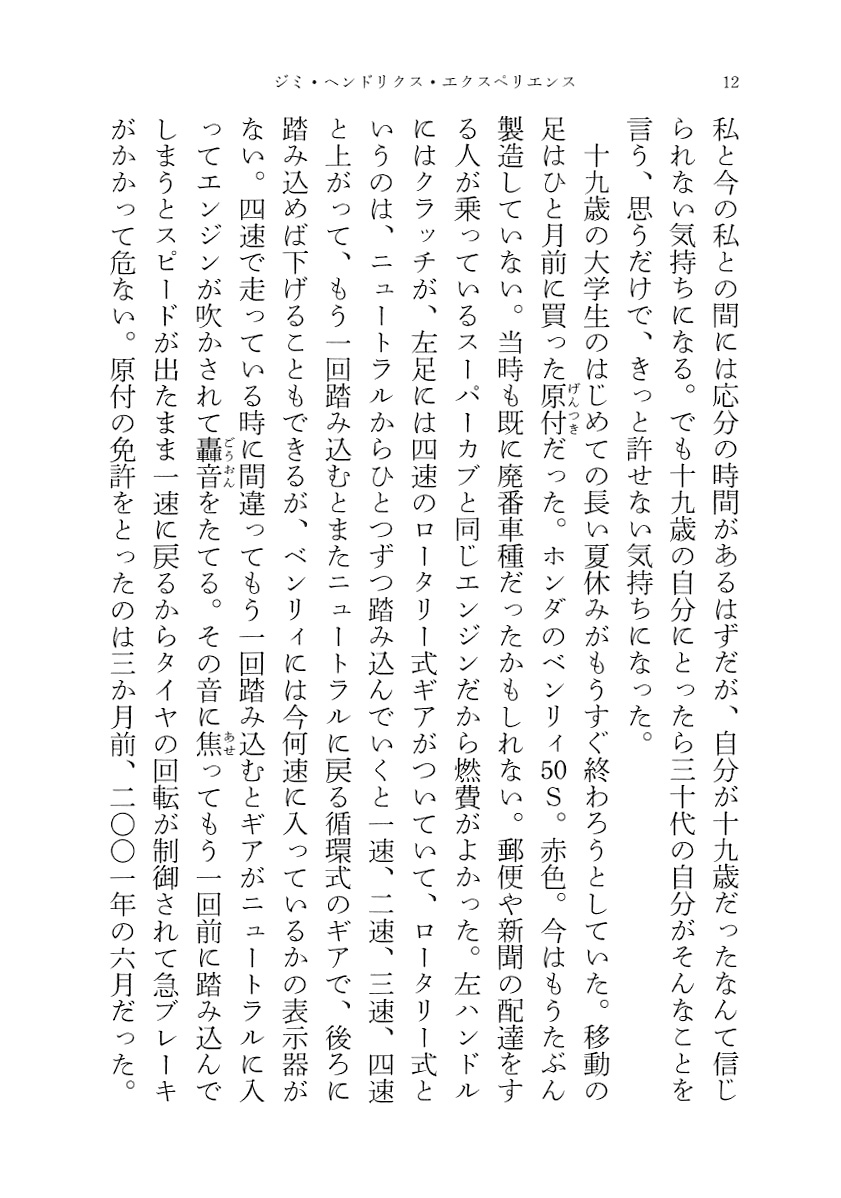 ジミ・ヘンドリクス・エクスペリエンス
12
私と今の私との間には応分の時間があるはずだが、自分が十九歳だったなんて信じ
られない気持ちになる。でも十九歳の自分にとったら三十代の自分がそんなことを
言う、思うだけで、きっと許せない気持ちになった。
　十九歳の大学生のはじめての長い夏休みがもうすぐ終わろうとしていた。移動の
足はひと月前に買った原付だった。ホンダのベンリィ50S。赤色。今はもうたぶん
げんつき
製造していない。当時も既に廃番車種だったかもしれない。郵便や新聞の配達をす
る人が乗っているスーパーカブと同じエンジンだから燃費がよかった。左ハンドル
にはクラッチが、左足には四速のロータリー式ギアがついていて、ロータリー式と
いうのは、ニュートラルからひとつずつ踏み込んでいくと一速、二速、三速、四速
と上がって、もう一回踏み込むとまたニュートラルに戻る循環式のギアで、後ろに
踏み込めば下げることもできるが、ベンリィには今何速に入っているかの表示器が
ない。四速で走っている時に間違ってもう一回踏み込むとギアがニュートラルに入
ってエンジンが吹かされて轟音をたてる。その音に焦ってもう一回前に踏み込んで
ごうおん
あせ
しまうとスピードが出たまま一速に戻るからタイヤの回転が制御されて急ブレーキ
がかかって危ない。原付の免許をとったのは三か月前、二〇〇一年の六月だった。